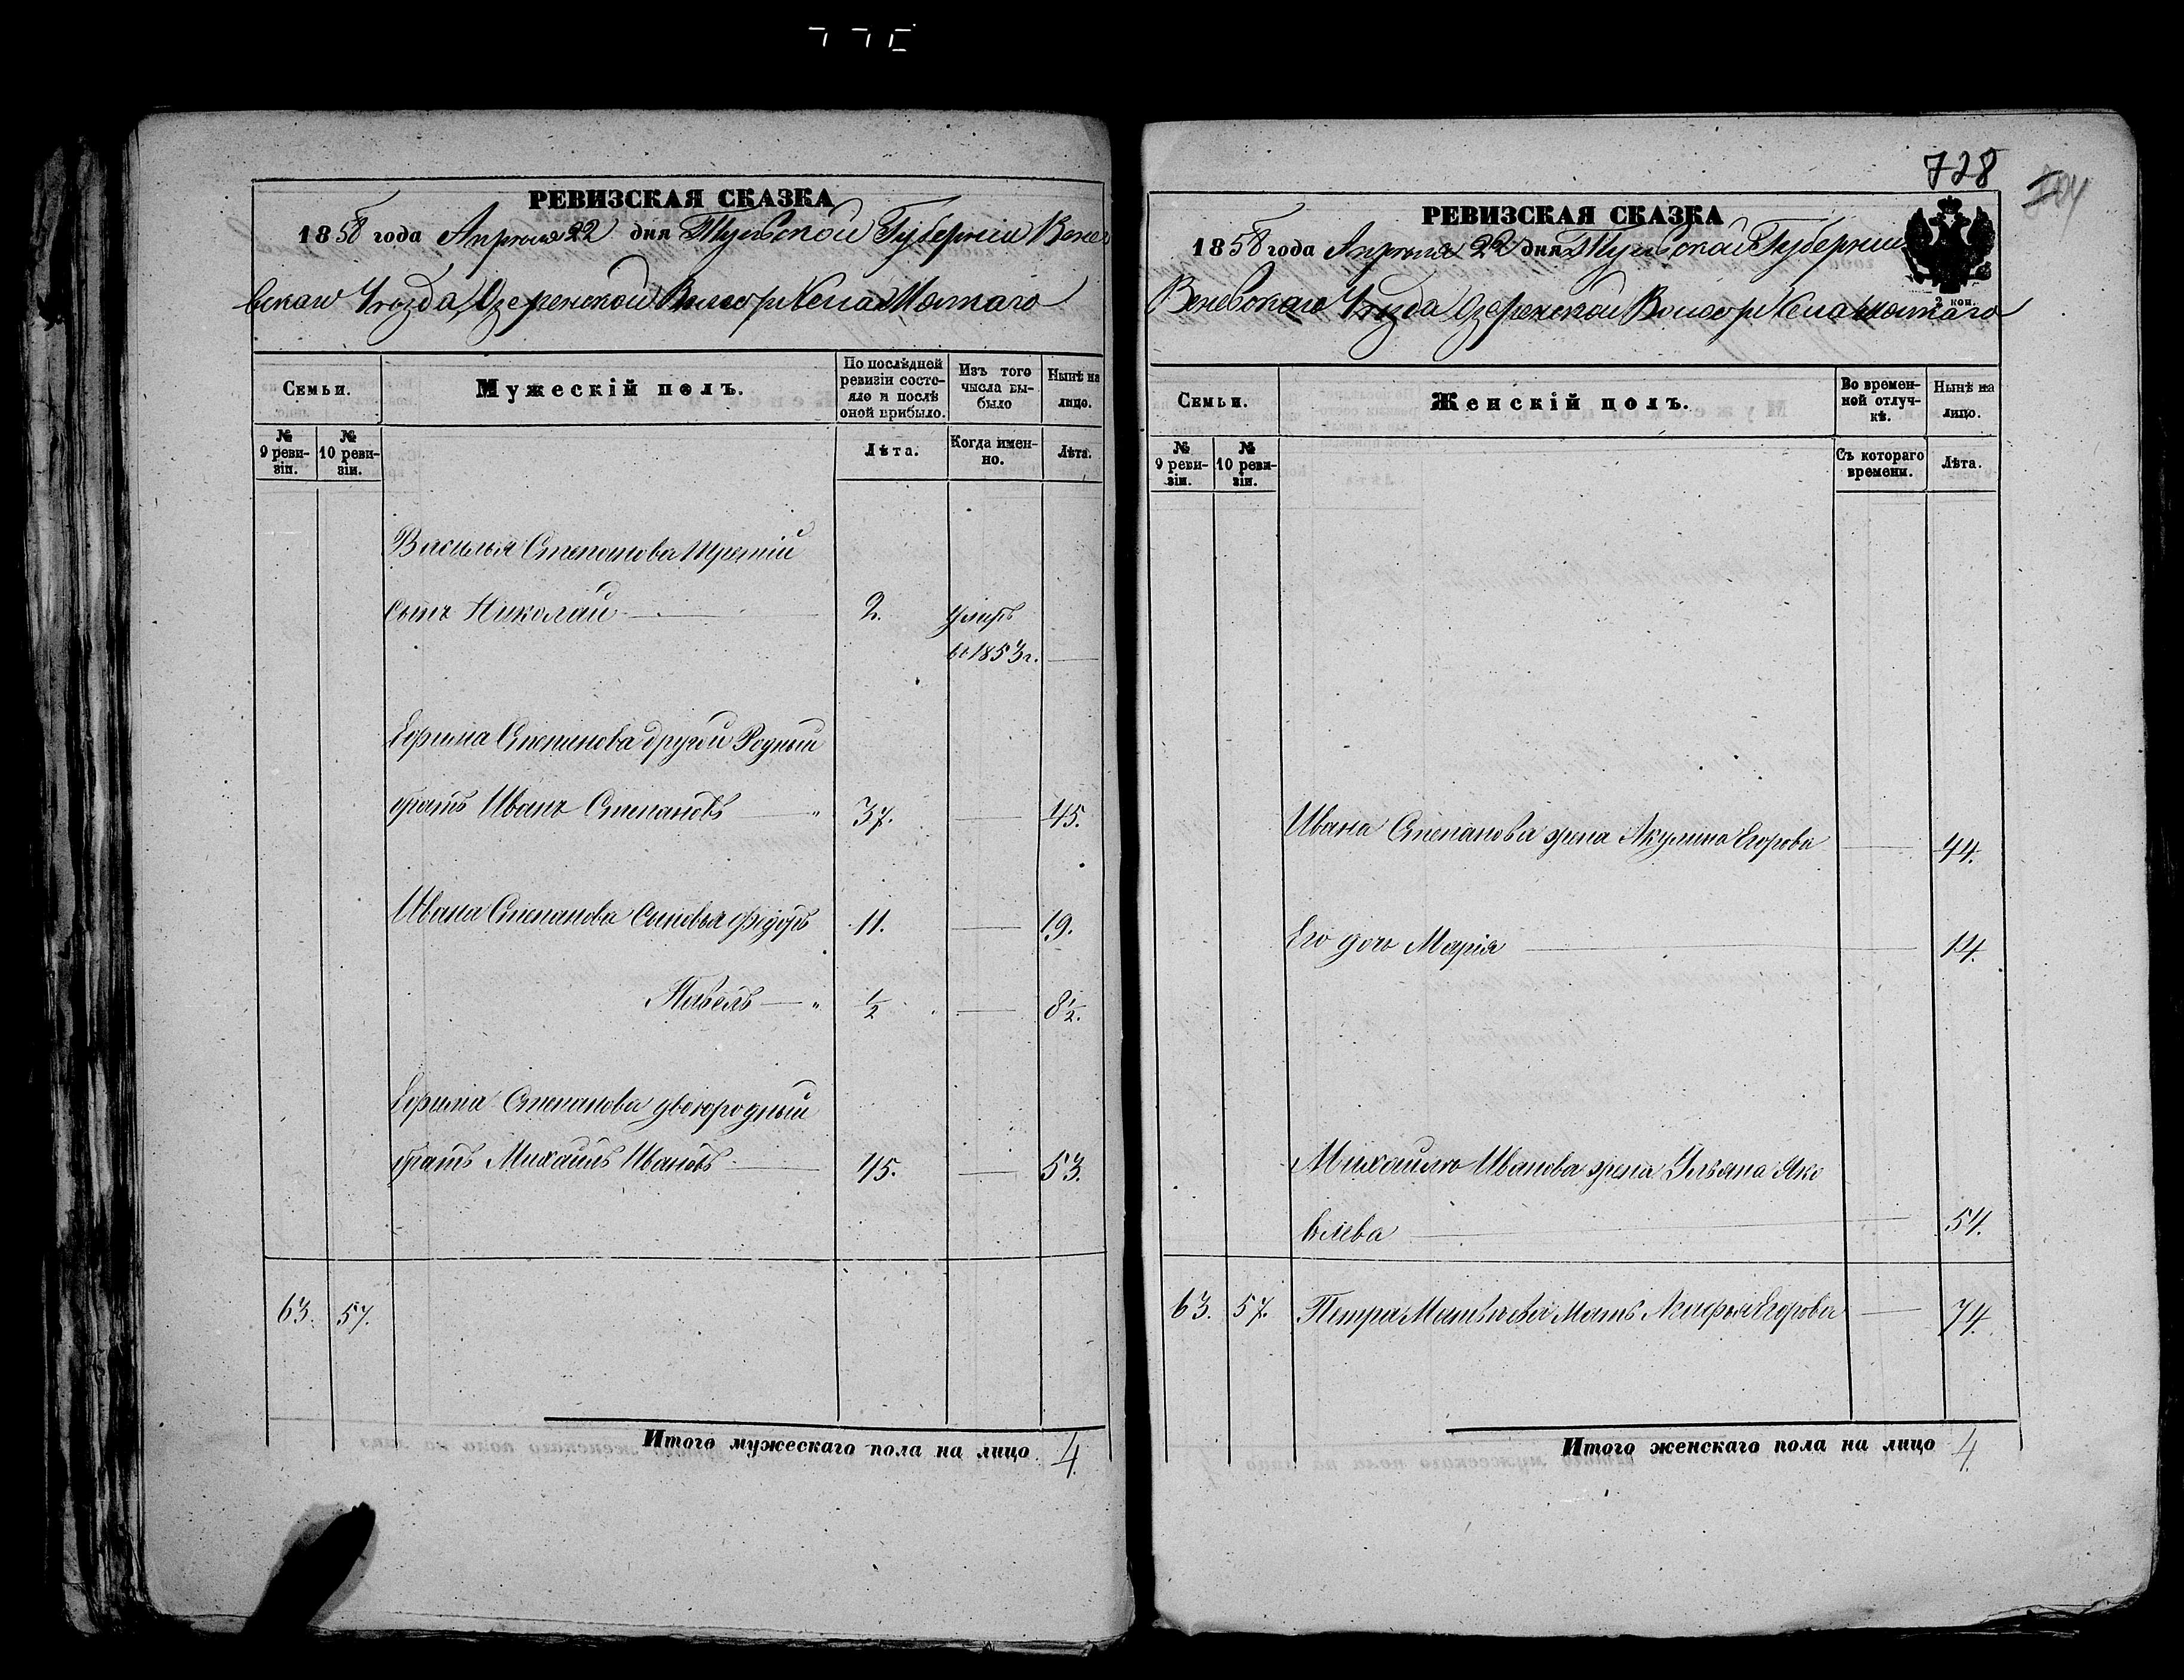 РЕВИЗСКАЯ СКАЗКА
1858 года Апреля 22 дня Тульской Губернiи Вене
вскаго Уѣзда Озеренской Волости Села Мотаго
Семьи.
Мужескiй полъ.
По послѣдней ревизiи состояло и послѣ оной прибыло.
Изъ того числа выбыло
Нынѣ на лицо.
№ 9 ревизiи.
№ 10 ревизiи.
Лѣта.
Когда именно.
Лѣта.
Василья Степанова третiй
сынъ Николай 2. умеръ
въ 1853 г.
Ефима Степанова другой Родный
братъ Иванъ Степановъ 37. 45.
Ивана Степанова Сыновья Федоръ 11. 19.
Павелъ 1/2 8 1/2.
Ефима Степанова двоюродный
братъ Михаилъ Ивановъ 45. 53.
63. 57.
Итого мужескаго пола на лицо 4.
728
РЕВИЗСКАЯ СКАЗКА
1858 года Апреля 22 дня Тульской Губернiи
2 коп.
Веневскаго Уѣзда Озеренской Волости Села
Семьи.
Женскiй полъ.
Во временной отлучкѣ.
Нынѣ на лицо.
№ 9 ревизiи.
№ 10 ревизiи.
Съ котораго времени.
Лѣта.
Ивана Степанова жена Акулина Егорова 44.
Его дочь Марiя 14.
Михайлы Иванова жена Ульяна Яко
влева 54.
63. 57. Петра Матвѣева Мать Агафья Егорова 74.
Итого женскаго пола на лицо 4.